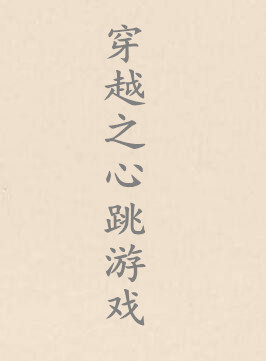 穿越之心跳游戏